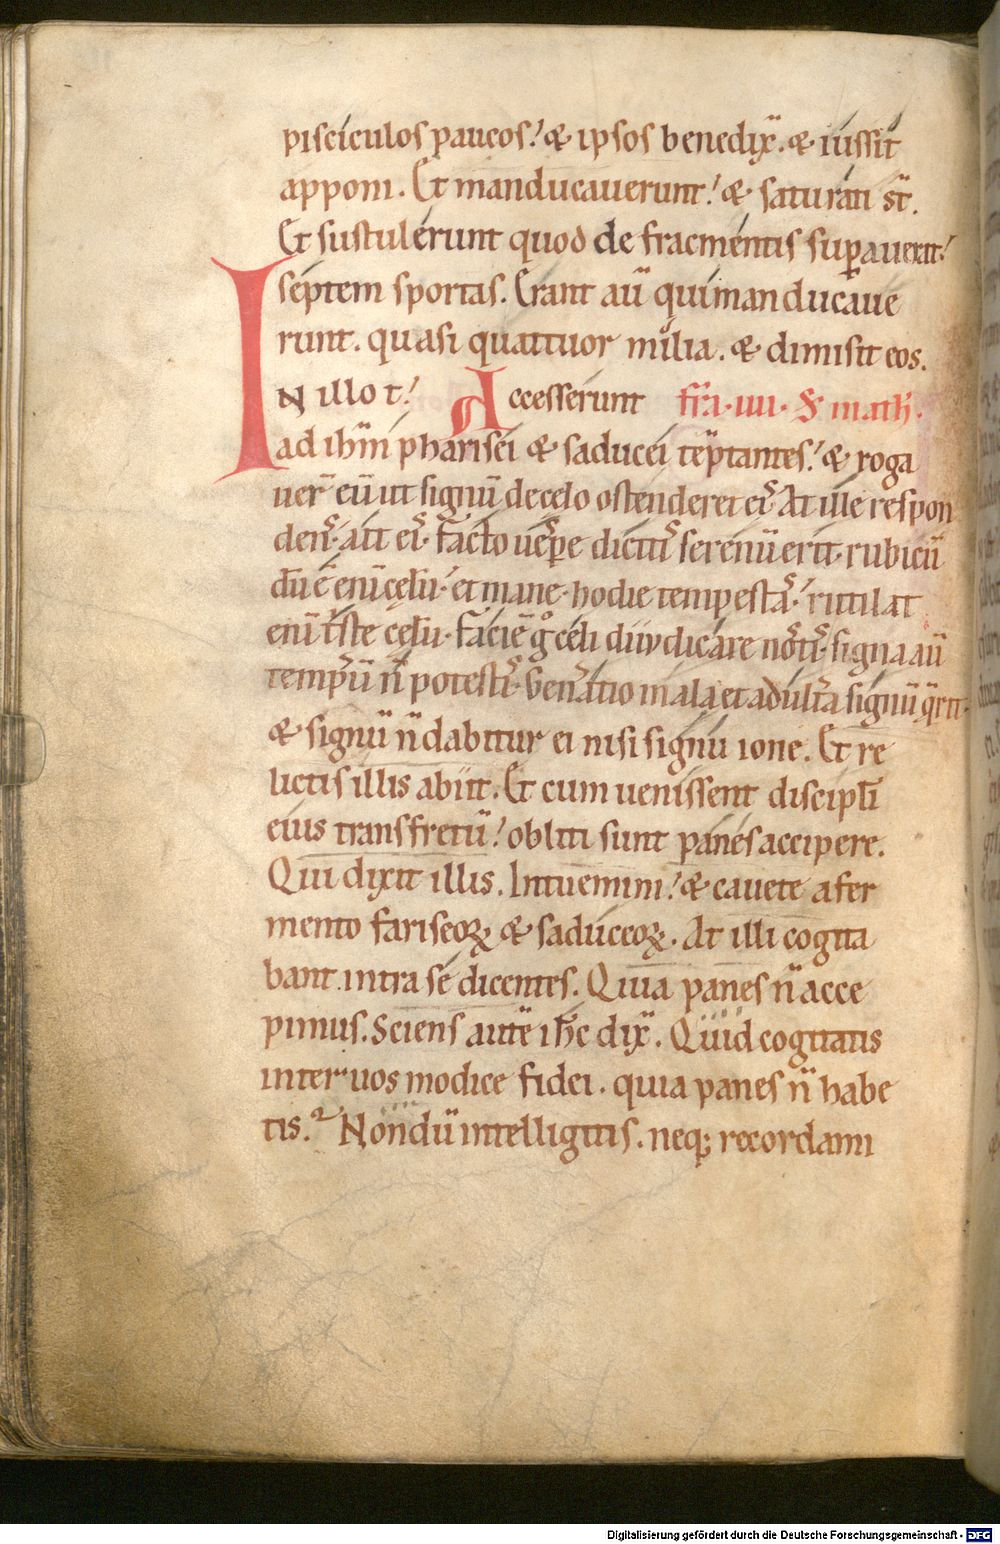 pisciculos paucos! & ipsos benedix̄. & iussit
apponi. Et manducauerunt! & saturati st̄.
Et sustulerunt quod de fragmentis suꝑauerat!
septem sportas. Erant aū qui manducaue
runt. quasi quattuor milia. & dimisit eos.
IN illo t! Accesserunt fr̄a. iiii. S& math̄.
ad ihm̄ pharisei & saducei tēptantes! & roga
uer̄ eū ut signū de celo ostenderet eiˢ. At ille respon
denˢ. ait eiˢ. Facto uesp̄e dicitiˢ serenū erit. rubicū
dū ē enī cęlū. et mane. hodie tempestaˢ! rutilat
enī t̄ste cęlū. Faciē gͦ celi diiudicare noˢtiˢ. signa aū
tempoꝝū n̄ potestiˢ. Gen̄atio mala et adult̄a signū q̄rit.
& signū n̄ dabitur ei nisi signū ione. Et re
lictis illis abiit. Et cum uenissent discipl̄i
eius transfretū! obliti sunt panes accipere.
Qui dixit illis. Intuemini! & cauete a fer
mento fariseoꝝ & saduceoꝝ. At illi cogita
bant intra se dicentes. Quia panes n̄ acce
pimus. Sciens autē ih̄c dix̄. Quid cogitatis
inter uos modice fidei. quia panes n̄ habe
tis. Nondū intelligitis. neq; recordami
Digitalisierung gefördert durch die Deutsche Forschungsgemeinschaft - DFG